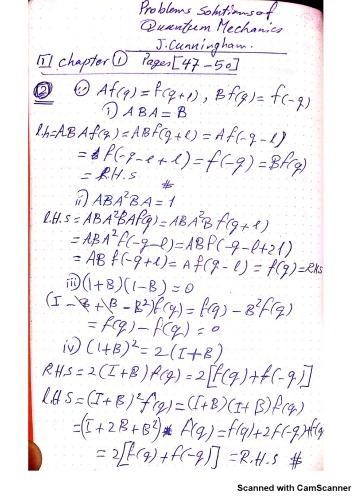 Problems Solutions of
Quantum Mechanics
J. Cunningham.
II chapter ① Pages [47-50]
② i) Af(q) = f(q+l), Bf(q) = f(-q)
i) ABA = B
l.h = ABAf(q) = ABf(q+l) = Af(-q-l)
= f(-q-l+l) = f(-q) = Bf(q)
= R.H.S #
ii) ABA²BA = 1
L.H.S = ABA²BAf(q) = ABA²Bf(q+l)
= ABA²f(-q-l) = ABf(-q-l+2l)
= ABf(-q+l) = Af(q-l) = f(q) = R.H.S
iii) (1+B)(1-B) = 0
(I - B + B - B²)f(q) = f(q) - B²f(q)
= f(q) - f(q) = 0
iv) (1+B)² = 2(I+B)
R.H.S = 2(I+B)f(q) = 2[f(q) + f(-q)]
L.H.S = (I+B)²f(q) = (I+B)(I+B)f(q)
= (I+2B+B²) f(q) = f(q) + 2f(-q) + f(q)
= 2[f(q) + f(-q)] = R.H.S #
Scanned with CamScanner